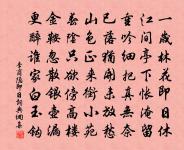 一歲林花即日休
江間亭下悵淹留
重吟細把真無奈
已落猶開未放愁
山色正來銜小苑
春陰只欲傍高樓
金鞍忽散銀壺漏
更醉誰家白玉鈎
李商隱即日詞典網集